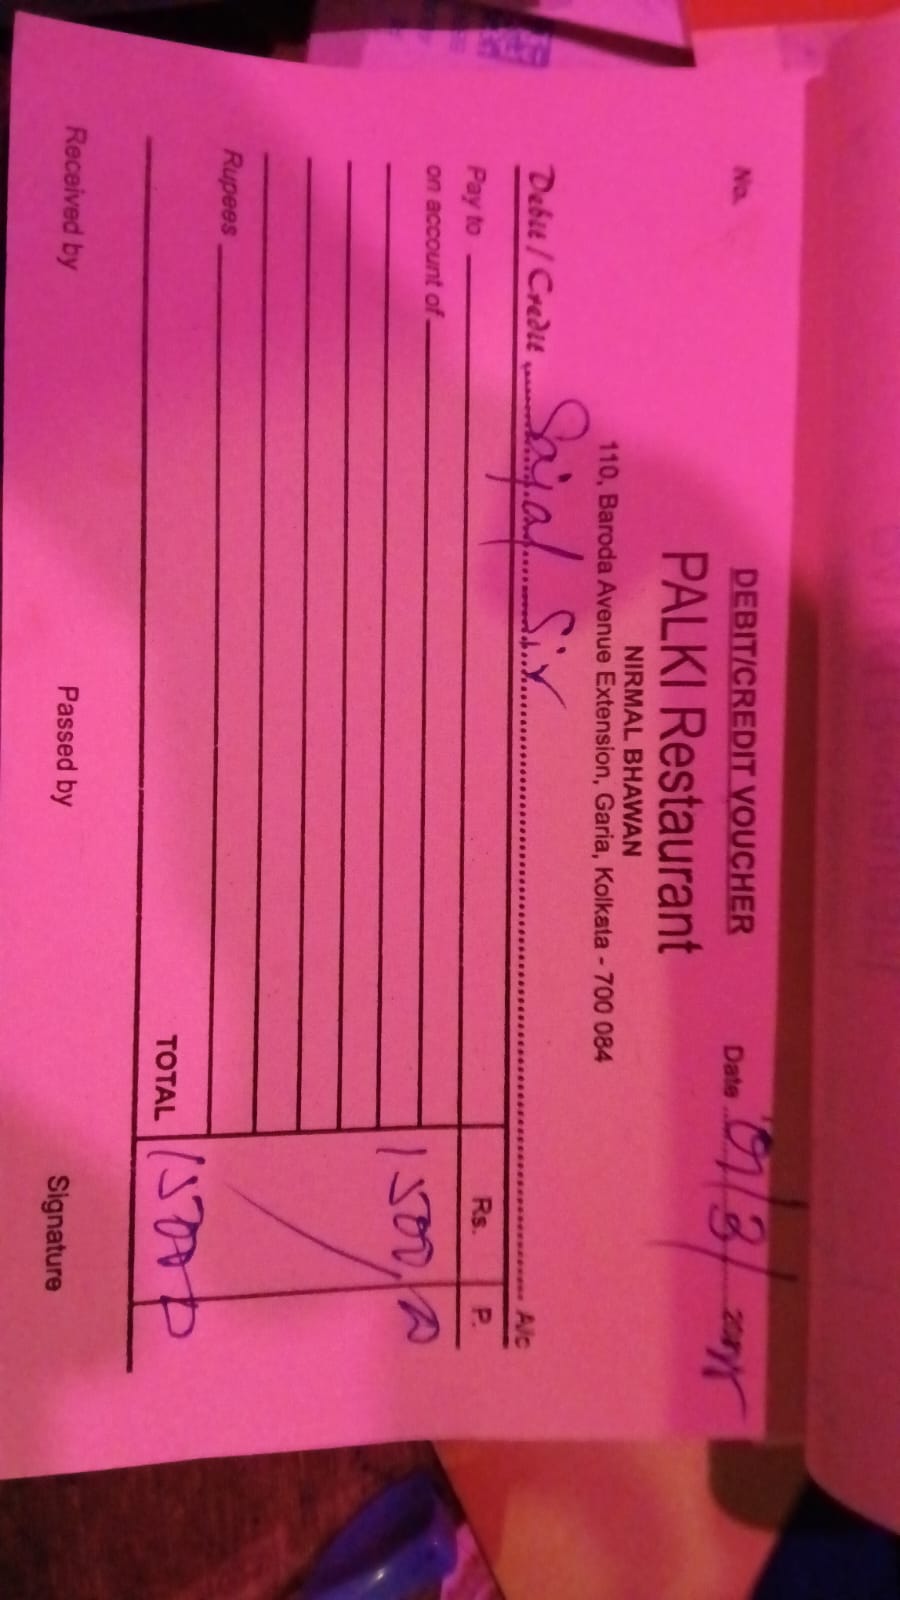 DEBIT/CREDIT VOUCHER
No. Date 01/3/
PALKI Restaurant
NIRMAL BHAWAN
110, Baroda Avenue Extension, Garia, Kolkata - 700 084
Debit / Credit Sajal Sir A/c
Pay to Rs. P.
on account of
1500,00
Rupees
TOTAL 1500 0
Received by Passed by Signature